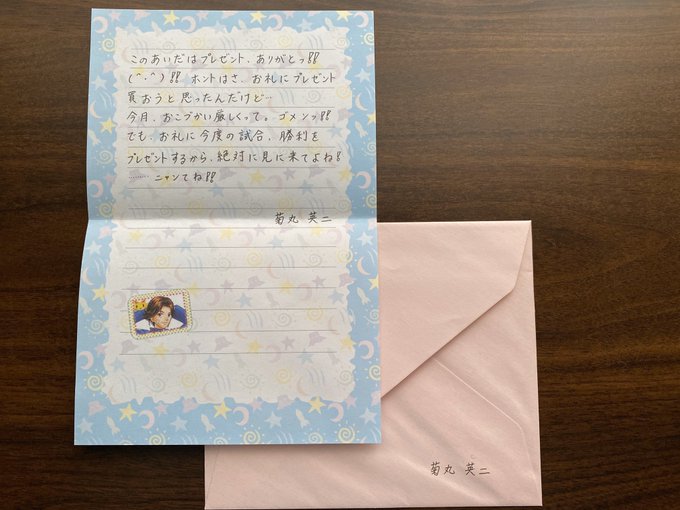 このあいだはプレゼント、ありがとっ!!
(^・^)!! ホントはさ、お札にプレゼント
買おうと思ったんだけど…
今月、おこづかい厳しくって。ゴメンッ!!
でも、お礼に今度の試合、勝利を
プレゼントするから、絶対に見に来てよね!
……… ニャンてね!!
菊丸 英二
菊丸 英二